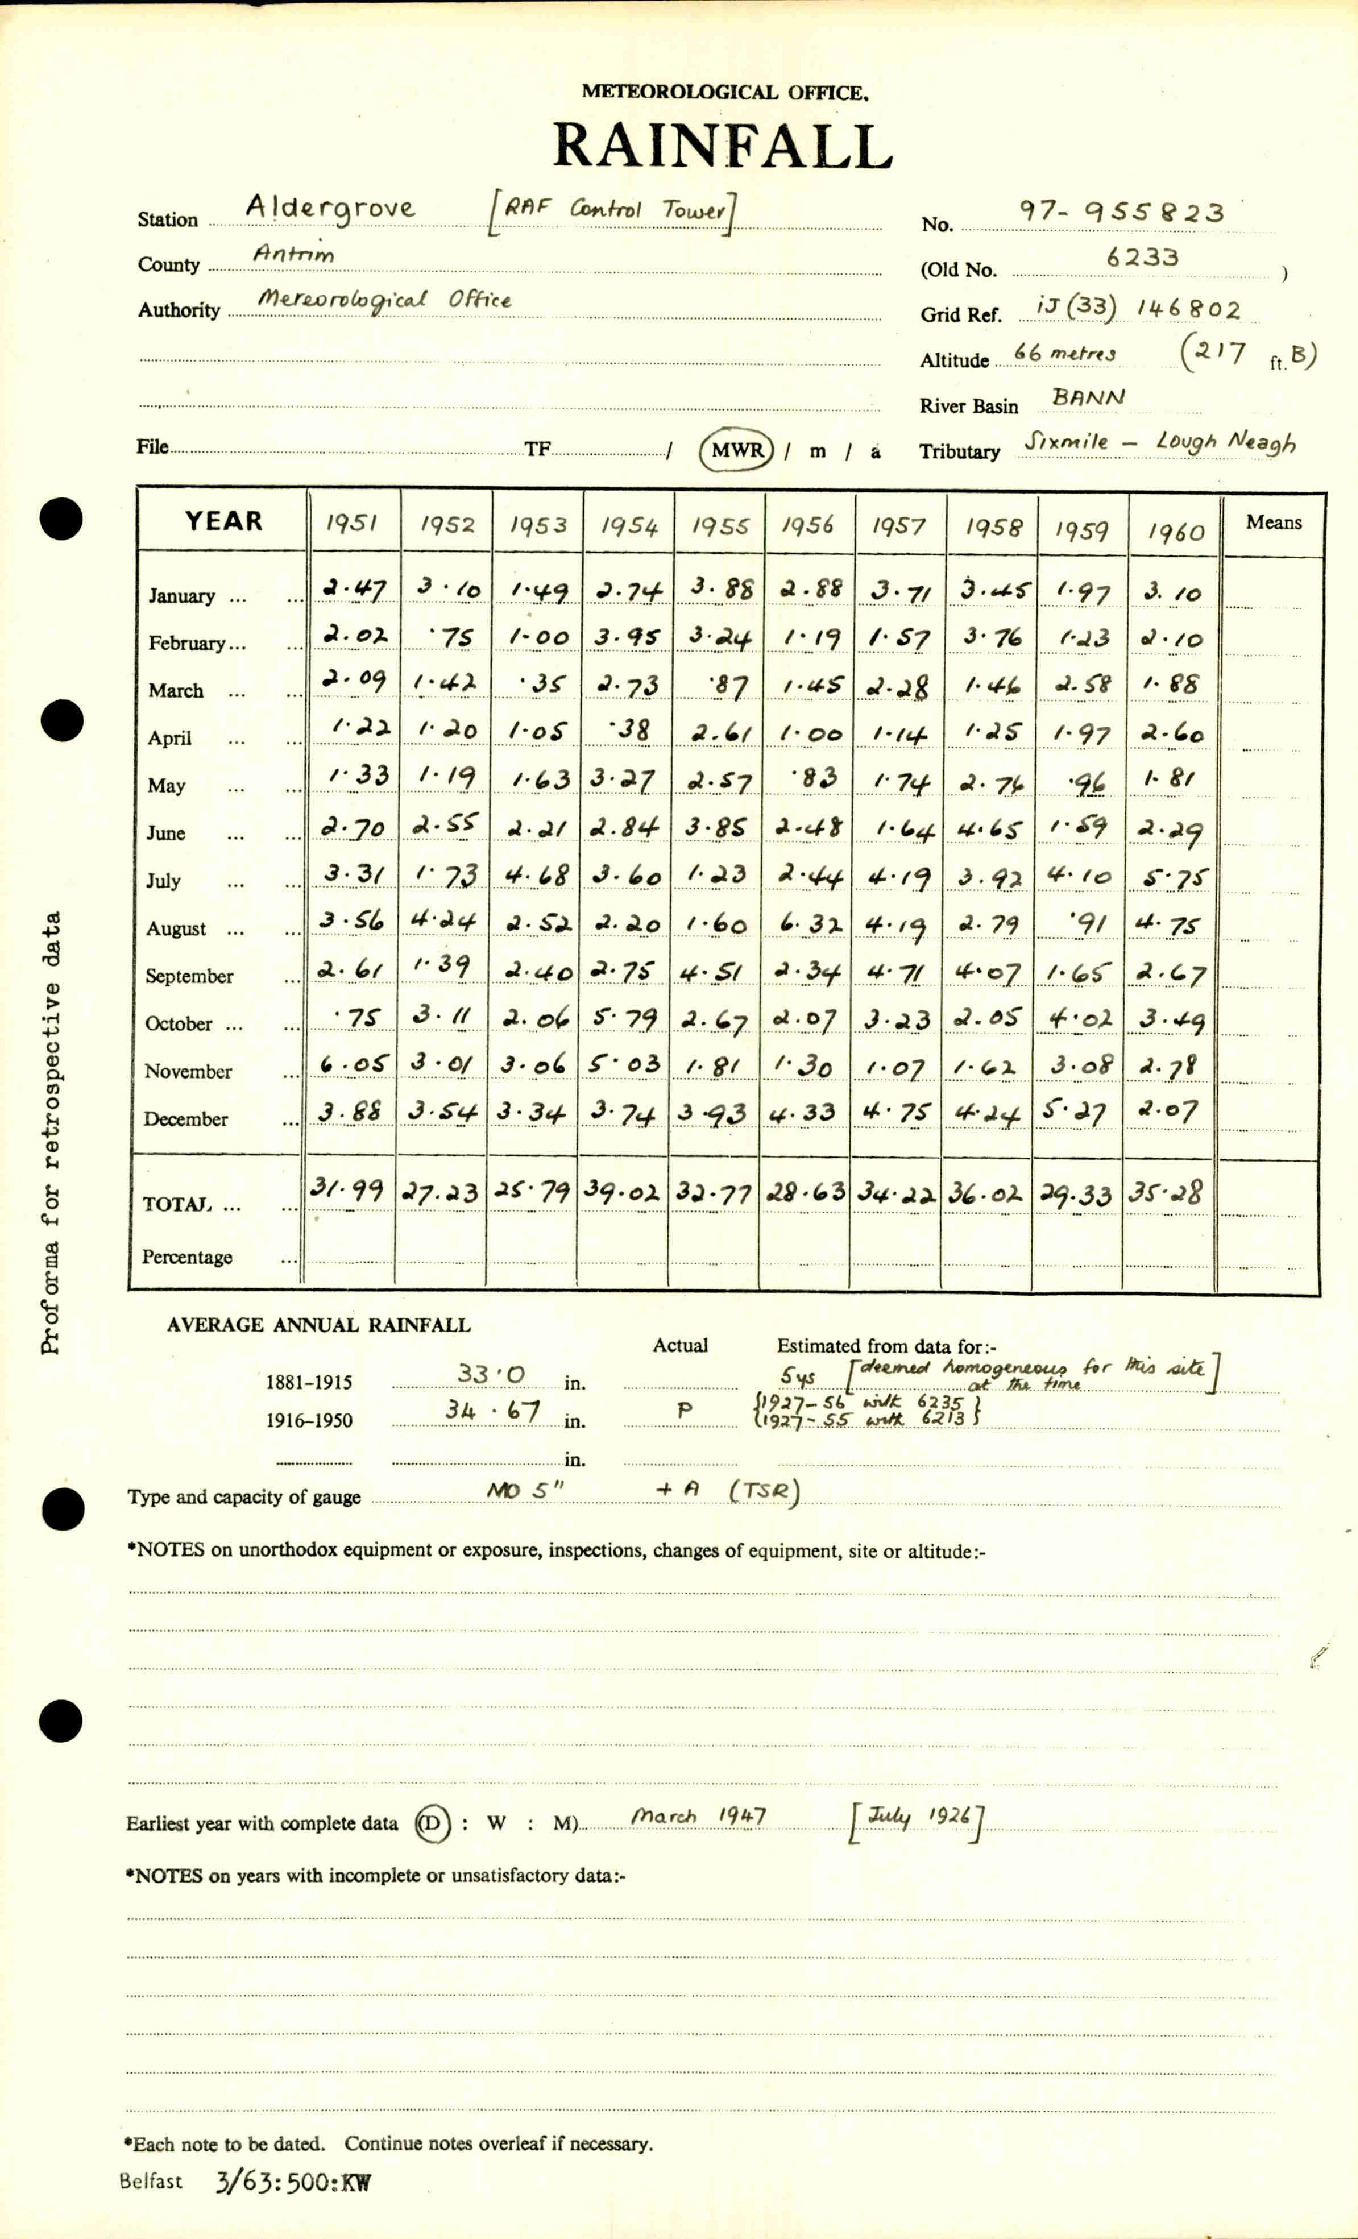 METEOROLOGICAL OFFICE.
RAINFALL
Station Aldergrove [RAF Control Tower] No. 97-955823
County Antrim (Old No. 6233 )
Authority Meteorological Office Grid Ref. iJ (33) 146802
Altitude 66 metres (217 ft. B)
River Basin BANN
File TF / MWR / m / a Tributary Sixmile - Lough Neagh
YEAR 1951 1952 1953 1954 1955 1956 1957 1958 1959 1960 Means
January ... ... 2.47 3.10 1.49 2.74 3.88 2.88 3.71 3.45 1.97 3.10
February ... ... 2.02 .75 1.00 3.95 3.24 1.19 1.57 3.76 1.23 2.10
March ... ... 2.09 1.42 .35 2.73 .87 1.45 2.28 1.46 2.58 1.88
April ... ... 1.22 1.20 1.05 .38 2.61 1.00 1.14 1.25 1.97 2.60
May ... ... 1.33 1.19 1.63 3.27 2.57 .83 1.74 2.76 .96 1.81
June ... ... 2.70 2.55 2.21 2.84 3.85 2.48 1.64 4.65 1.59 2.29
July ... ... 3.31 1.73 4.68 3.60 1.23 2.44 4.19 3.92 4.10 5.75
August ... ... 3.56 4.24 2.52 2.20 1.60 6.32 4.19 2.79 .91 4.75
September ... 2.61 1.39 2.40 2.75 4.51 2.34 4.71 4.07 1.65 2.67
October ... ... .75 3.11 2.06 5.79 2.67 2.07 3.23 2.05 4.02 3.49
November ... 6.05 3.01 3.06 5.03 1.81 1.30 1.07 1.62 3.08 2.78
December ... 3.88 3.54 3.34 3.74 3.93 4.33 4.75 4.24 5.27 2.07
TOTAL ... ... 31.99 27.23 25.79 39.02 32.77 28.63 34.22 36.02 29.33 35.28
Percentage ...
Proforma for retrospective data
AVERAGE ANNUAL RAINFALL
Actual Estimated from data for:-
1881-1915 33.0 in. 5ys [deemed homogeneous for this site at the time]
1916-1950 34.67 in. P {1927-56 with 6235}
{1927-55 with 6213}
in.
Type and capacity of gauge MO 5" + A (TSR)
*NOTES on unorthodox equipment or exposure, inspections, changes of equipment, site or altitude:-
Earliest year with complete data (D : W : M) March 1947 [July 1926]
*NOTES on years with incomplete or unsatisfactory data:-
*Each note to be dated. Continue notes overleaf if necessary.
Belfast 3/63:500:KW